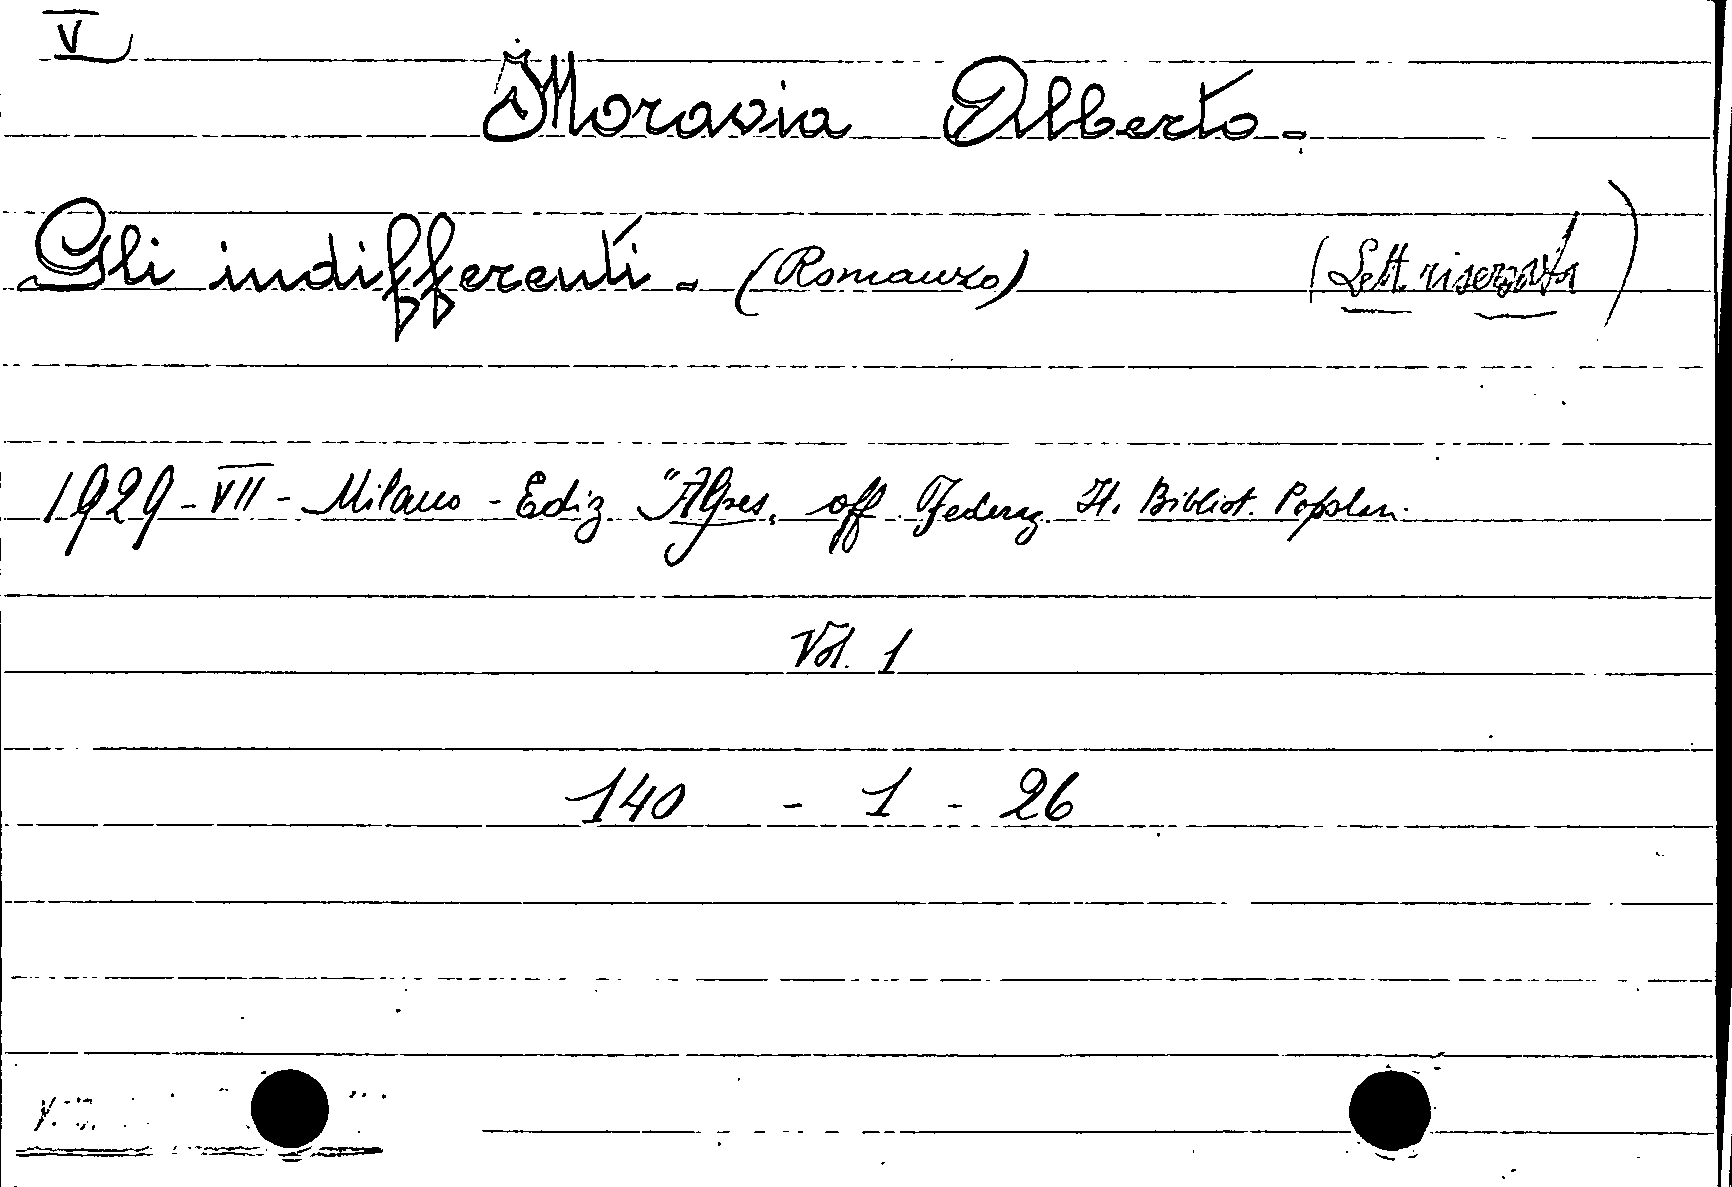 V
Moravia Alberto.
Gli indifferenti. (Romanzo) (Lett. riservata)
1929 - VII - Milano - Ediz "Alpes" off. Federaz. It. Bibliot. Popolari.
Vol. 1
140 - 1 - 26